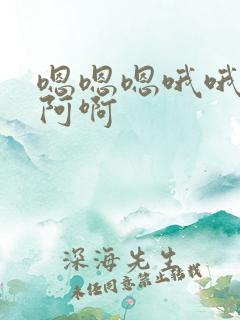 嗯嗯嗯哦哦
阿啊
深海先生
未经同意禁止转载